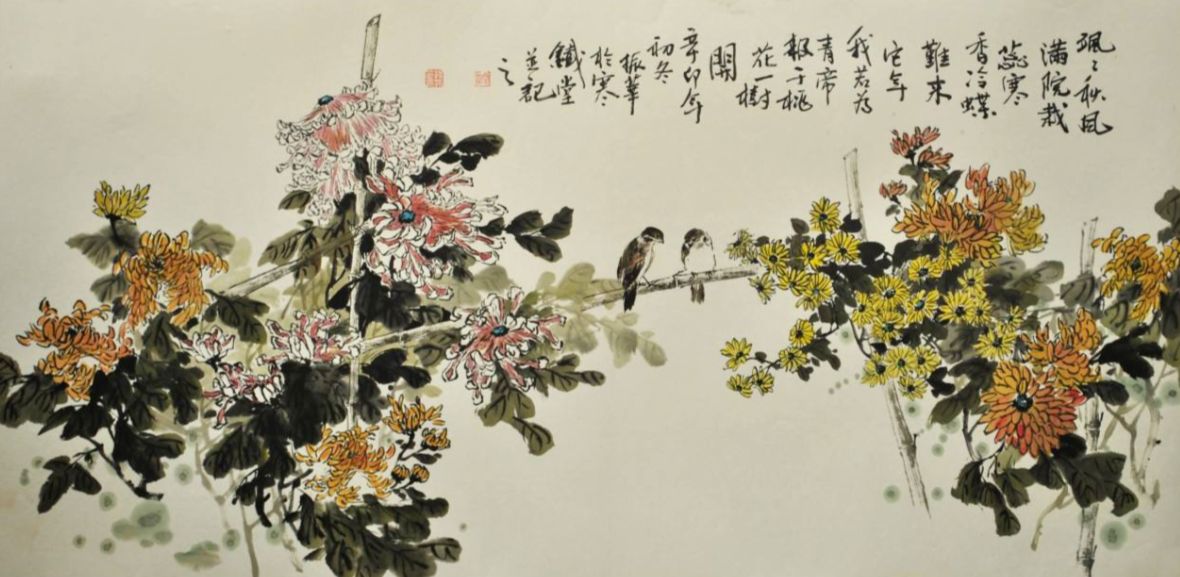 颯〻秋風
滿院栽
蕊寒
香冷蝶
難来
它年
我若为
青帝
報于桃
花一樹
開
辛卯年
初冬
振華
於寒
鐵堂
並記
之